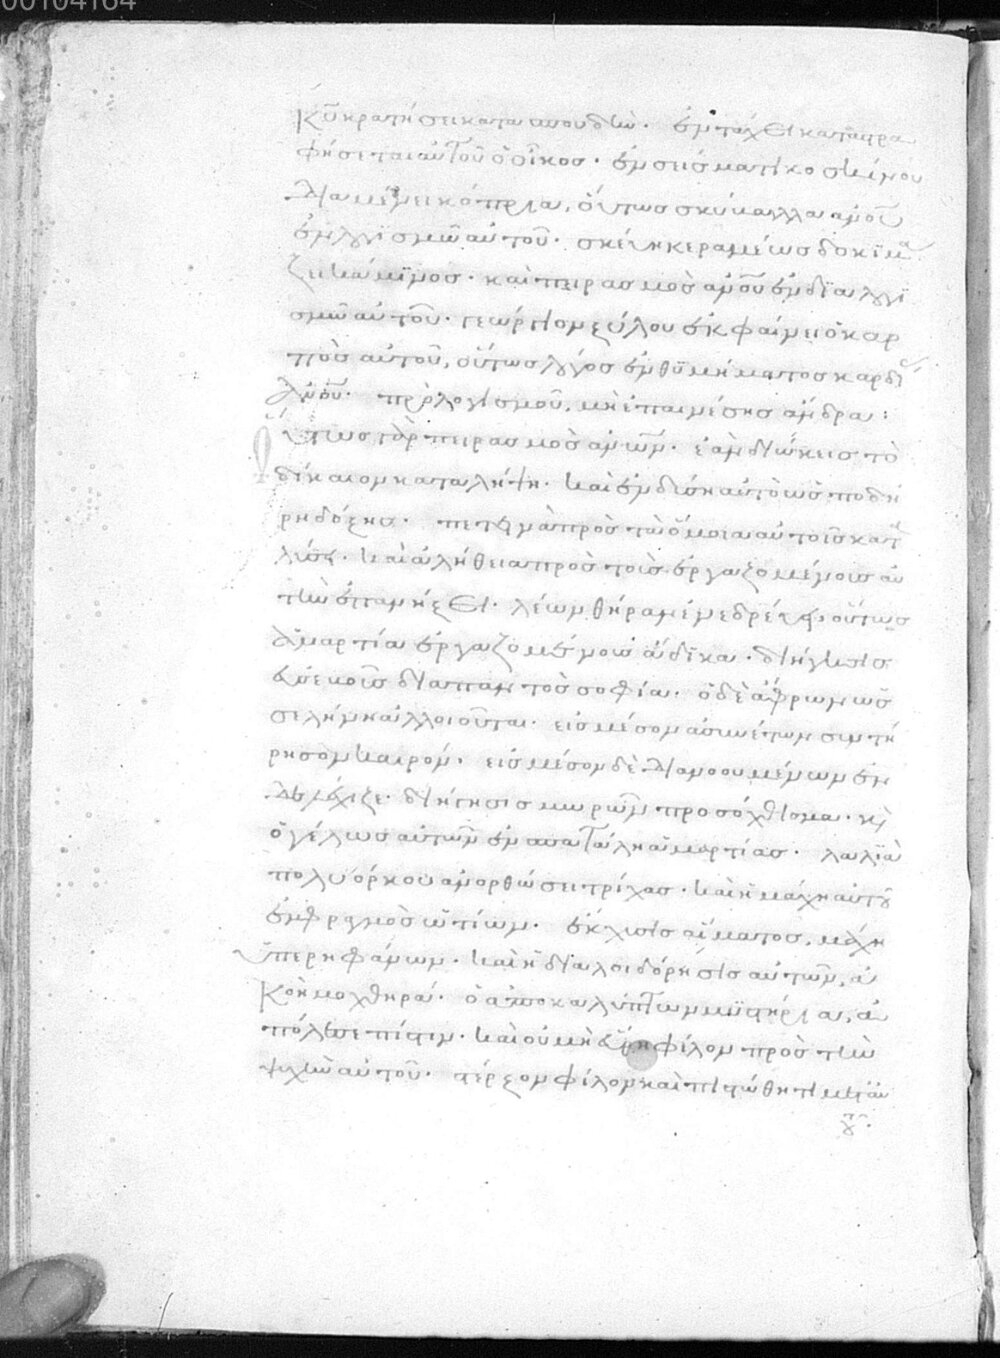 κ̅υ̅ κρατήσει κατὰ σπουδὴν· ἐν τάχει καταστρα
φήσεται αὐτοῦ ὁ οἶκος· ἐν σείσματι κοσκίνου
διαμένει κόπρια, οὕτως σκύβαλλα ἀν̅ου̅
ἐν λογισμῶ αὐτοῦ· σκεύη κεραμέως δοκιμά
ζει κάμινος· καὶ πειρασμὸς ἀν̅ου̅ ἐν διαλογι
σμῶ αὐτοῦ· γεώργιον ξύλου ἐκφαίνει ὁ καρ
πὸς αὐτοῦ, οὕτως λόγος ἐνθυμήματος καρδί
ἀν̅ου̅· πρὸ λογισμοῦ, μὴ ἐπαινέσης ἄνδρα:
οὗτως γὰρ πειρασμὸς ἀν̅ων̅· ἐὰν διώκεις τὸ
δίκαιον καταλήψη· καὶ ἐνδύση αὐτὸ ὡς ποδή
ρη δόξης· πετεινὰ πρὸς τὰ ὅμοια αὐτοῖς κατα
λύσει· καὶ ἀλήθεια πρὸς τοὺς ἐργαζομένους αὐ
τὴν ἐπανήξει· λέων θήραν ἐνεδρεύει, οὕτως
ἁμαρτία ἐργαζομένους ἄδικα· διήγησις
εὐσεβοῦς διαπαντὸς σοφία· ὁ δὲ ἄφρων ὡς
σελήνη ἀλλοιοῦται· εἰς μέσον ἀσυνέτων συντή
ρησον καιρόν· εἰς μέσον δὲ διανοουμένων ἐν
δελέχιζε· διήγησις μωρῶν προσόχθισμα· κὶ
ὁ γέλως αὐτῶν ἐν σπατάλη ἁμαρτίας· λαλιὰ
πολυόρκου ἀνορθώσει τρίχας· καὶ ἡ μάχη αὐτοῦ
ἐμφραγμὸς ὠτίων· ἔκχυσις αἵματος, μάχη
ὑπερηφάνων· καὶ ἡ διαλοιδόρησις αὐτῶν, ἀ
κοὴ μοχθηρά· ὁ ἀποκαλύπτων μυστήρια, ἀ
πόλεσε πίστιν· καὶ οὐ μὴ εὕρη φίλον πρὸς τὴν
ψυχὴν αὐτοῦ· στέρξον φίλον καὶ πιστώθητι μετ' αὐ
τοῦ·